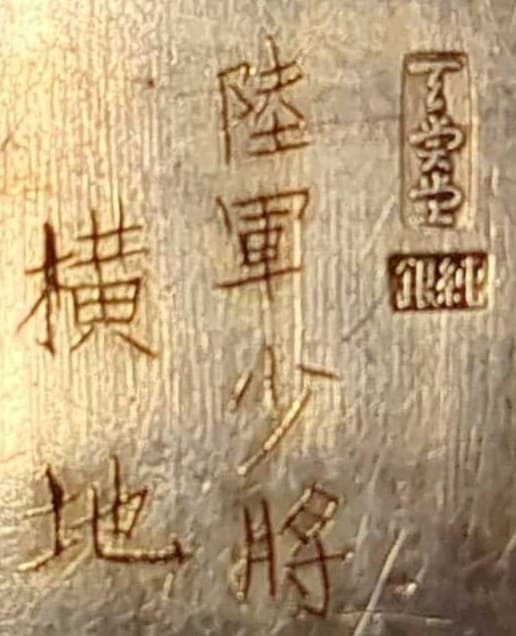 純銀
陸軍少將
横地